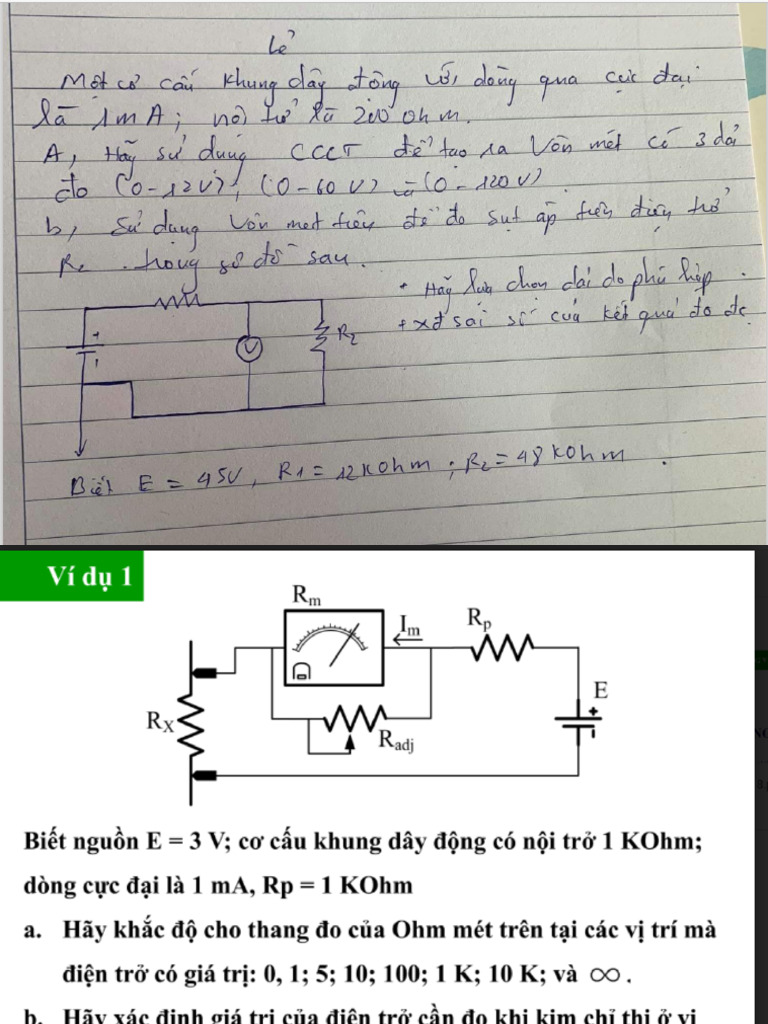 Lẻ
Một cơ cấu khung dây động với dòng qua cực đại
là 1mA; nội trở là 200 ohm.
A, Hãy sử dụng CCCT để tạo ra Vôn mét có 3 dải
đo (0-12V); (0-60V) và (0-120V).
b, Sử dụng Vôn met trên để đo sụt áp trên điện trở
R2 trong sơ đồ sau.
+ Hãy lựa chọn dải đo phù hợp.
+ xđ sai số của kết quả đo đc
+
V
R2
Biết E = 45V, R1 = 12KOhm; R2 = 48KOhm.
Ví dụ 1
Rm
Im
Rp
E
+
RX
Radj
Biết nguồn E = 3 V; cơ cấu khung dây động có nội trở 1 KOhm;
dòng cực đại là 1 mA, Rp = 1 KOhm
a. Hãy khắc độ cho thang đo của Ohm mét trên tại các vị trí mà
điện trở có giá trị: 0, 1; 5; 10; 100; 1 K; 10 K; và ∞.
b. Hãy xác định giá trị của điện trở cần đo khi kim chỉ thị ở vị